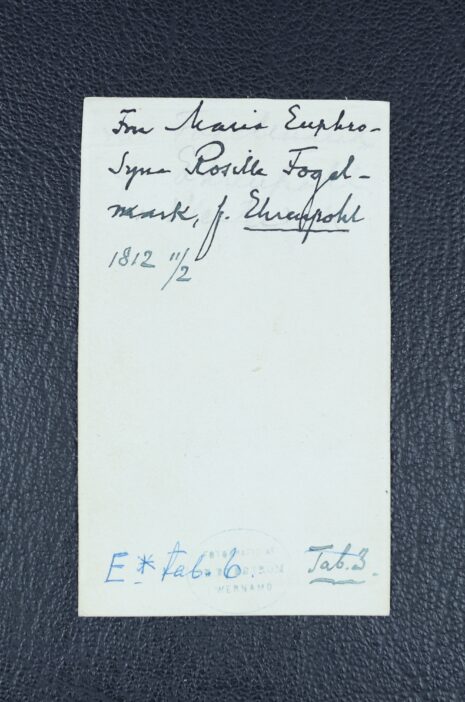 Fru Maria Euphro-
syne Rosille Fogel-
mark, f. Ehrenpohl
1812 11/2
E* tab. 6.
Tab. 3.
WERNAMO